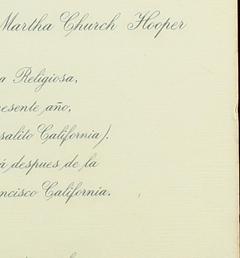 Martha Church Hooper
a Religiosa,
resente año,
salito California).
á despues de la
ncisco California.